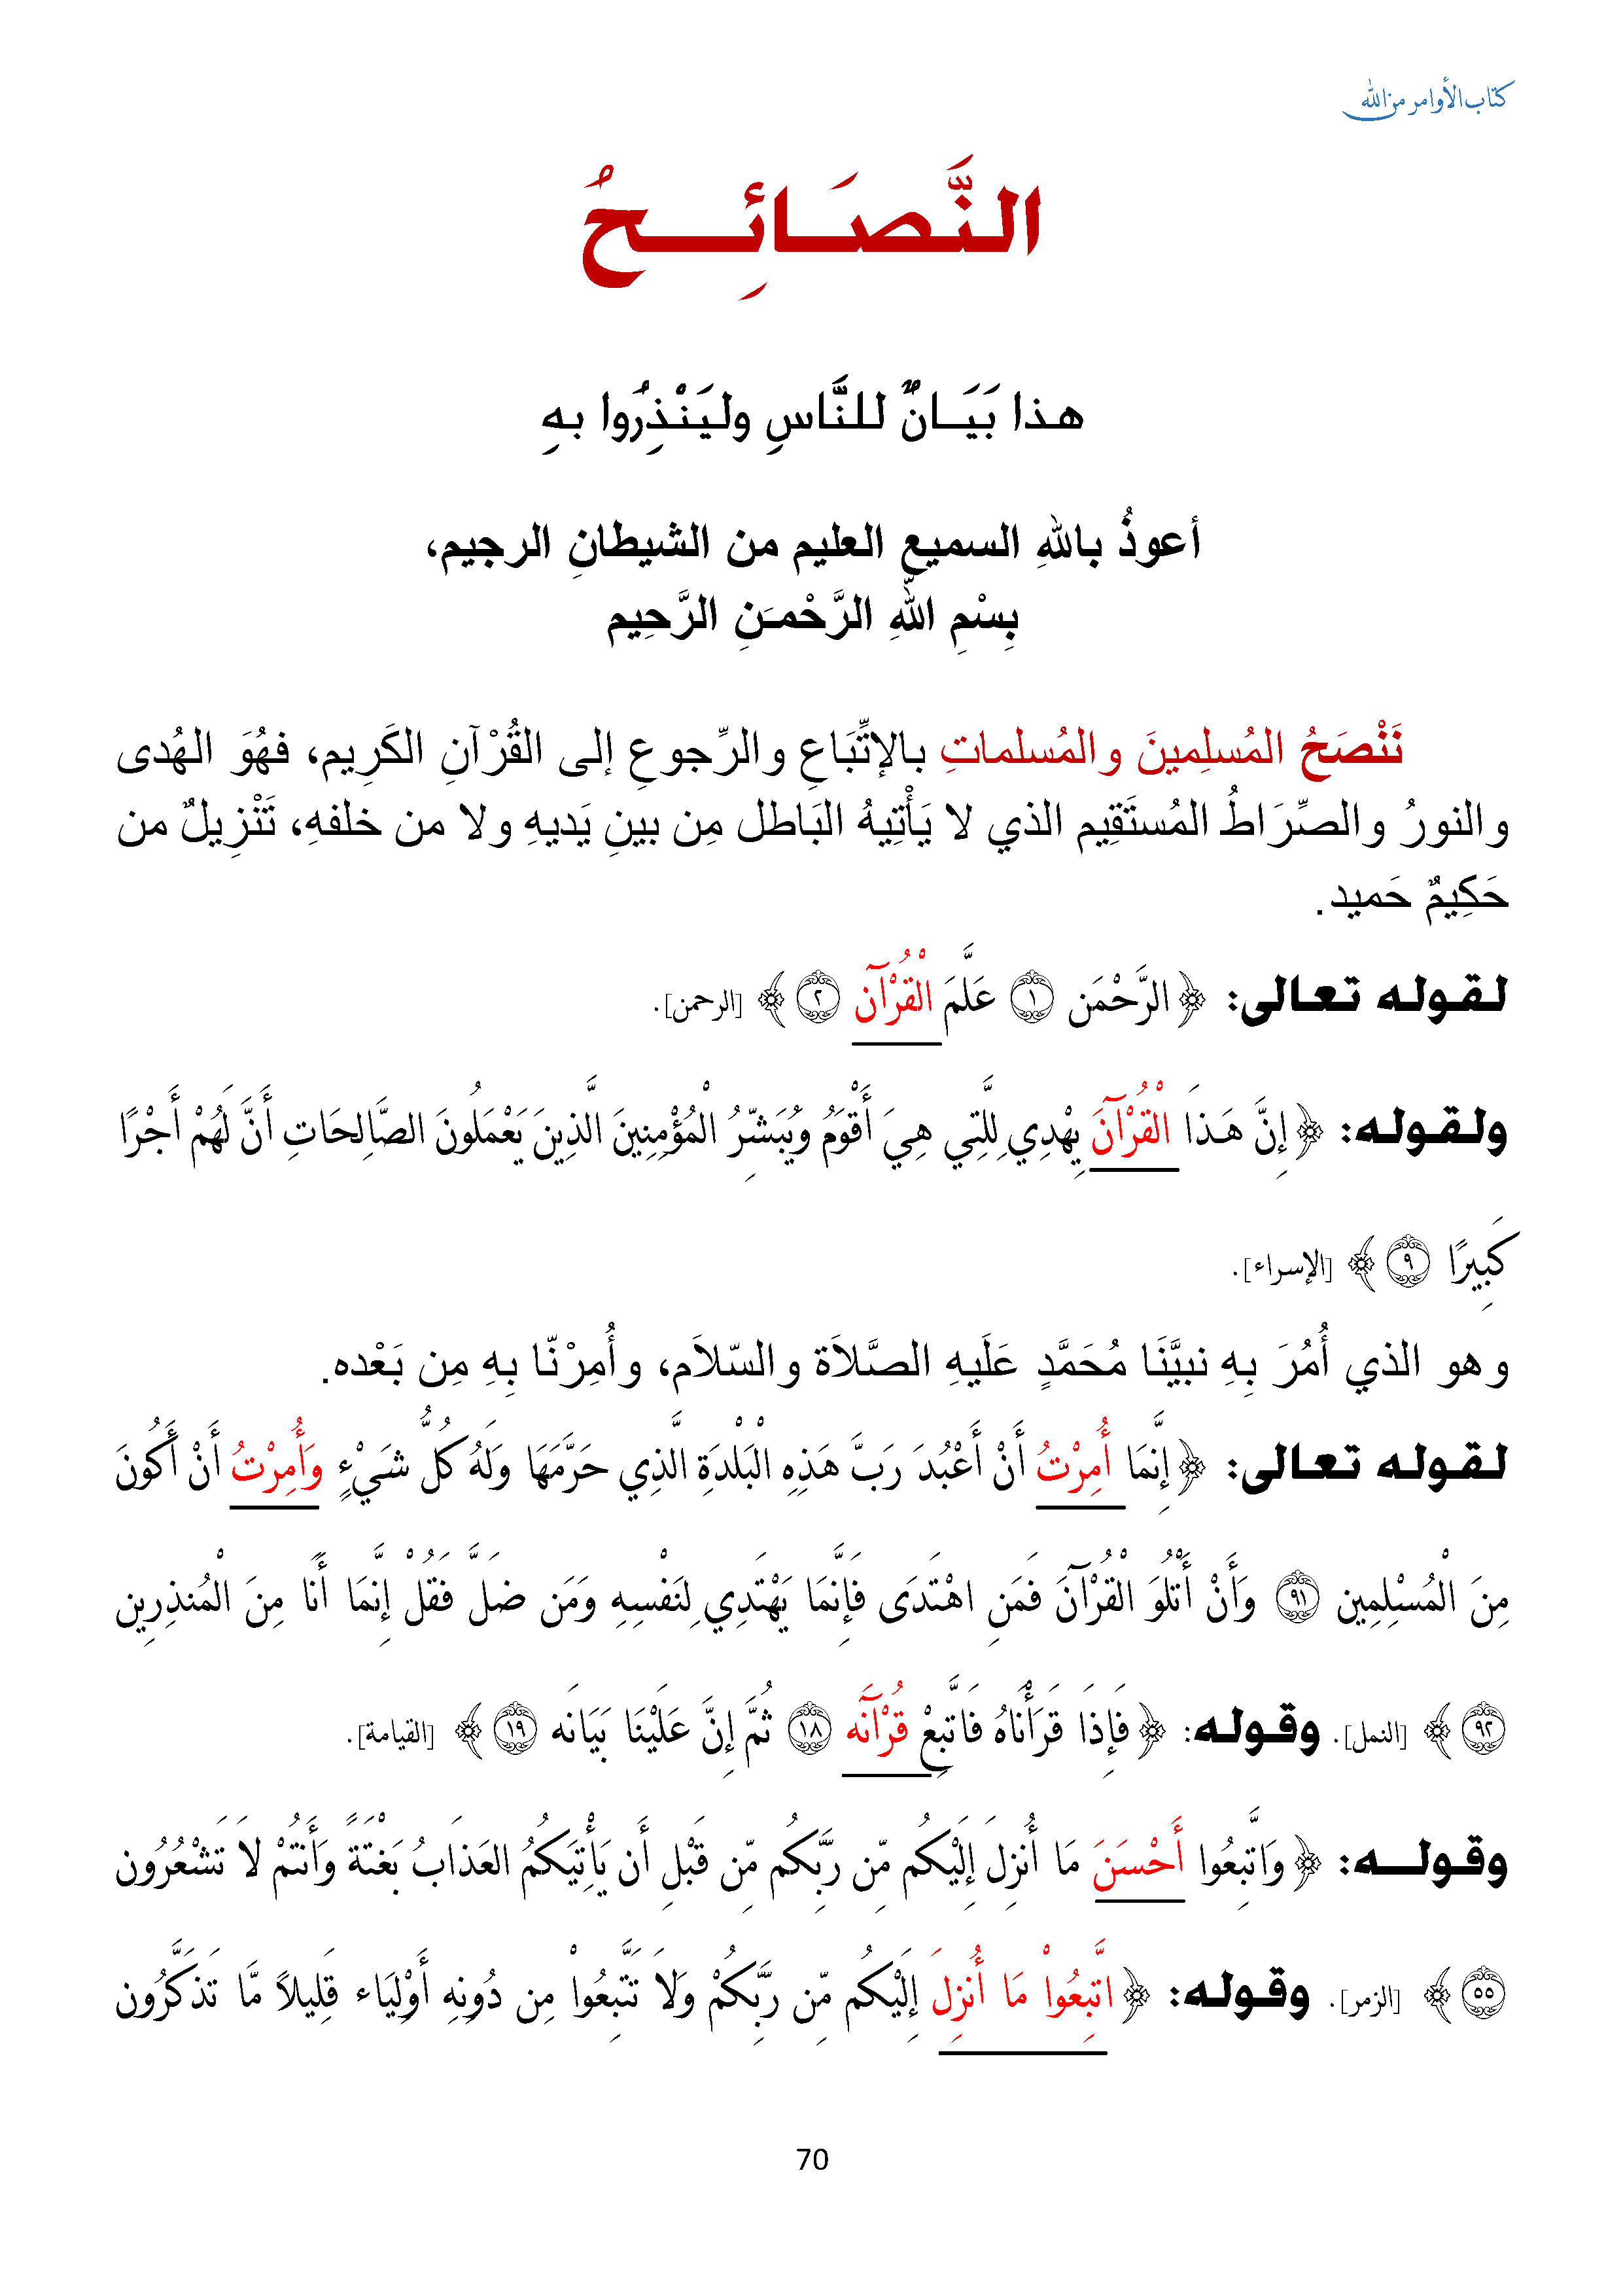 كتاب الأوامر من الله
النَّصَائِحُ
هذا بَيَانٌ للنَّاسِ وليَنْذِرُوا بهِ
أعوذُ باللهِ السميع العليم من الشيطانِ الرجيم،
بِسْمِ اللّهِ الرَّحْمـَنِ الرَّحِيم
نَنْصَحُ المُسلِمينَ والمُسلماتِ بالإتِّبَاعِ والرِّجوعِ إلى القُرْآنِ الكَرِيم، فهُوَ الهُدى
والنورُ والصِّرَاطُ المُستَقِيم الذي لا يَأْتِيهُ البَاطل مِن بينِ يَديهِ ولا من خلفهِ، تَنْزِيلٌ من
حَكِيمٌ حَميد.
لقوله تعالى: ﴿الرَّحْمَن ۝١ عَلَّمَ الْقُرْآن ۝٢﴾ [الرحمن].
ولقوله: ﴿إِنَّ هَـذَا الْقُرْآنَ يِهْدِي لِلَّتِي هِيَ أَقْوَمُ وَيُبَشِّرُ الْمُؤْمِنِينَ الَّذِينَ يَعْمَلُونَ الصَّالِحَاتِ أَنَّ لَهُمْ أَجْرًا
كَبِيرًا ۝٩﴾ [الإسراء].
وهو الذي أُمُرَ بِهِ نبيَّنَا مُحَمَّدٍ عَلَيهِ الصَّلاَة والسّلاَم، وأُمِرْنّا بِهِ مِن بَعْده.
لقوله تعالى: ﴿إِنَّمَا أُمِرْتُ أَنْ أَعْبُدَ رَبَّ هَذِهِ الْبَلْدَةِ الَّذِي حَرَّمَهَا وَلَهُ كُلُّ شَيْءٍ وَأُمِرْتُ أَنْ أَكُونَ
مِنَ الْمُسْلِمِين ۝٩١ وَأَنْ أَتْلُوَ الْقُرْآنَ فَمَنِ اهْتَدَى فَإِنَّمَا يَهْتَدِي لِنَفْسِهِ وَمَن ضَلَّ فَقُلْ إِنَّمَا أَنَا مِنَ الْمُنذِرِين
۝٩٢﴾ [النمل]. وقوله: ﴿فَإِذَا قَرَأْنَاهُ فَاتَّبِعْ قُرْآنَه ۝١٨ ثُمَّ إِنَّ عَلَيْنَا بَيَانَه ۝١٩﴾ [القيامة].
وقوله: ﴿وَاتَّبِعُوا أَحْسَنَ مَا أُنزِلَ إِلَيْكُم مِّن رَّبِّكُم مِّن قَبْلِ أَن يَأْتِيَكُمُ العَذَابُ بَغْتَةً وَأَنتُمْ لاَ تَشْعُرُون
۝٥٥﴾ [الزمر]. وقوله: ﴿اتَّبِعُواْ مَا أُنزِلَ إِلَيْكُم مِّن رَّبِّكُمْ وَلاَ تَتَّبِعُواْ مِن دُونِهِ أَوْلِيَاء قَلِيلاً مَّا تَذَكَّرُون
70